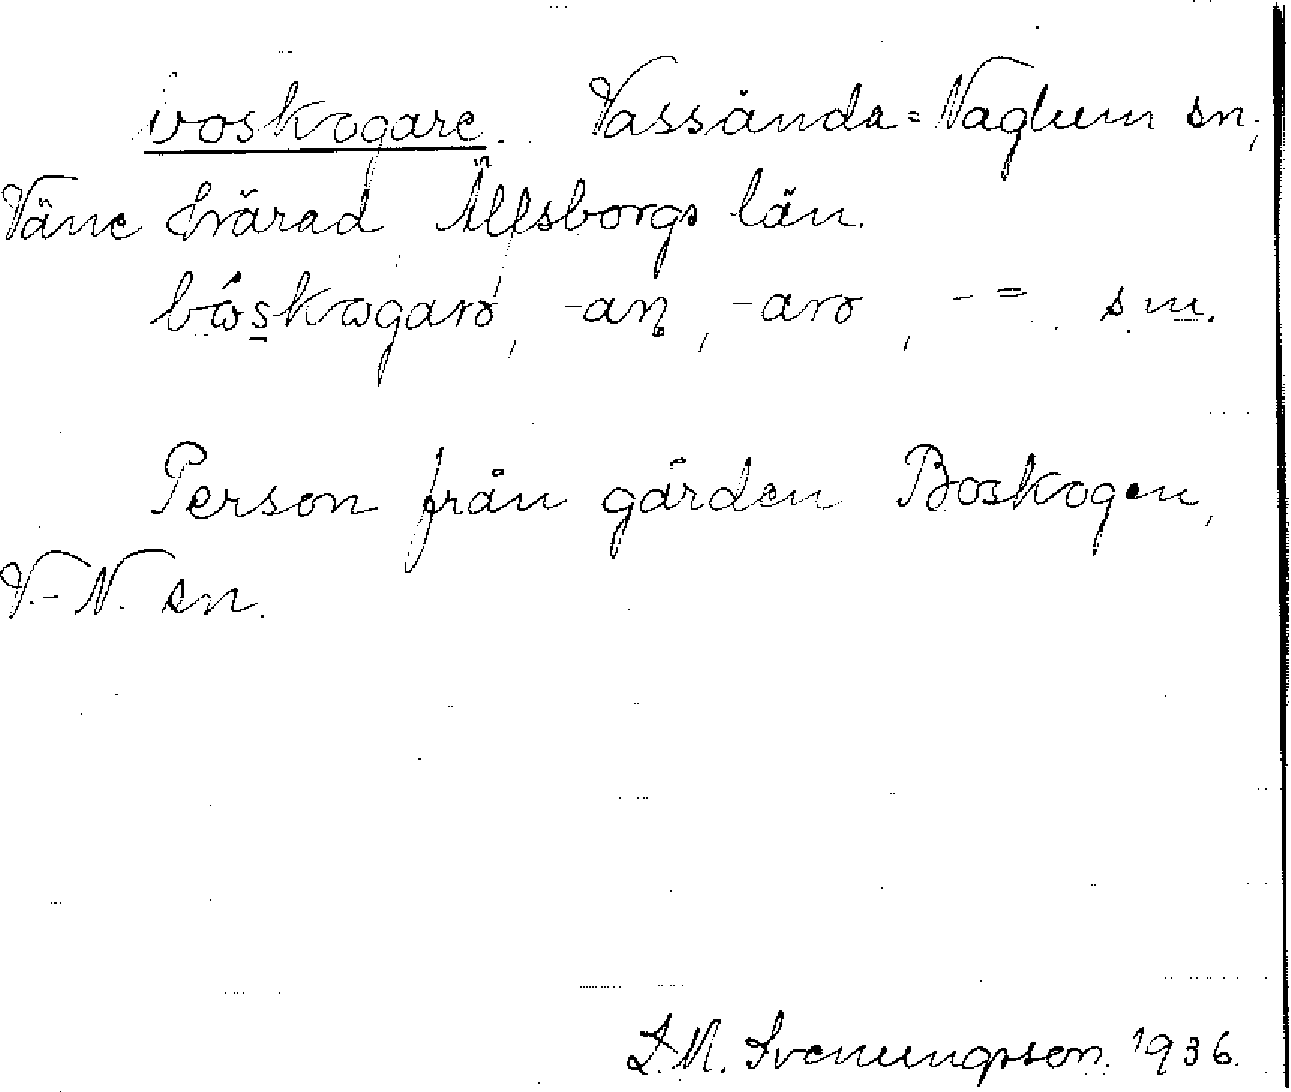 boskogare. Vassända=Naglum sn,
Väne härad Älfsborgs län.
bóskogarə, -aṇ, -arə, -= s m.
Person från gården Boskogen,
V.-N. sn.
L.M. Svenungsson. 1936.